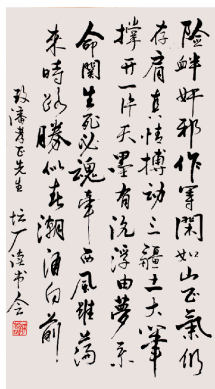 险衅奸邪作等闲如山正气仍
存肩真情搏动三疆土大笔
撑开一片天墨有沉浮由梦系
命关生死必魂牵西风虽荡
来时路胜似春潮涌向前
致潘孝正先生 坛厂读书会